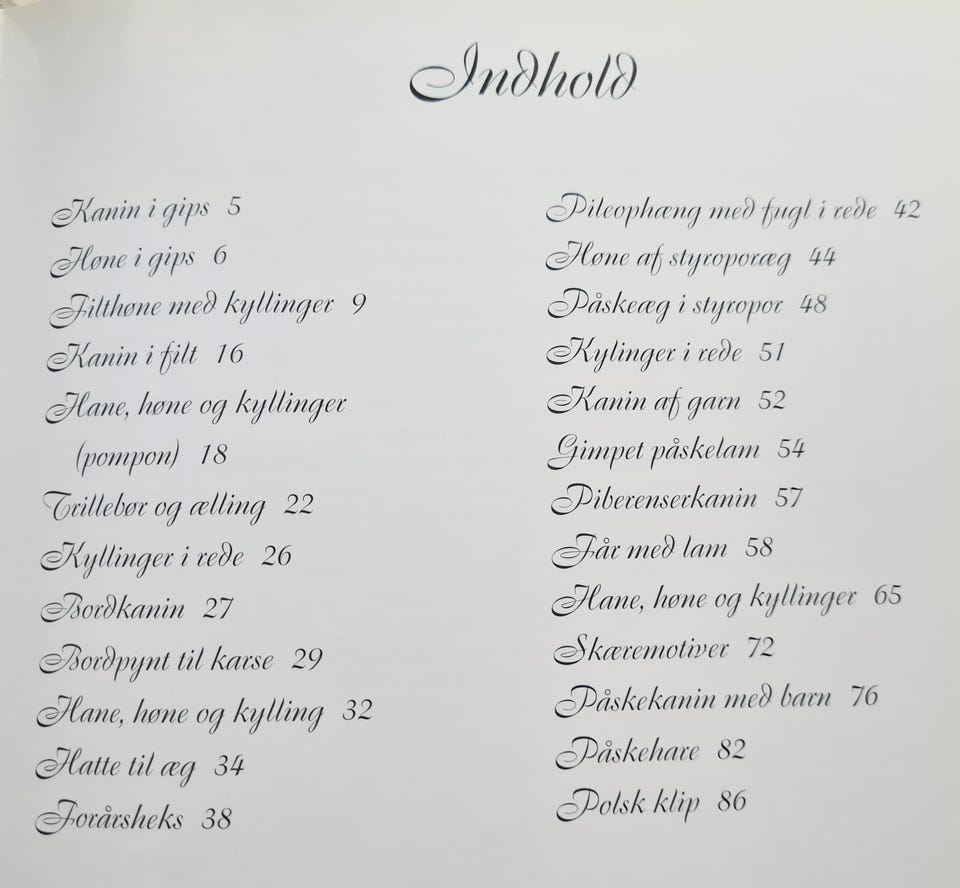 Indhold
Kanin i gips 5
Høne i gips 6
Filthøne med kyllinger 9
Kanin i filt 16
Hane, høne og kyllinger
(pompon) 18
Trillebør og ælling 22
Kyllinger i rede 26
Bordkanin 27
Bordpynt til karse 29
Hane, høne og kylling 32
Hatte til æg 34
Forårsheks 38
Pileophæng med fugl i rede 42
Høne af styroporæg 44
Påskeæg i styropor 48
Kylinger i rede 51
Kanin af garn 52
Gimpet påskelam 54
Piberenserkanin 57
Får med lam 58
Hane, høne og kyllinger 65
Skæremotiver 72
Påskekanin med barn 76
Påskehare 82
Polsk klip 86